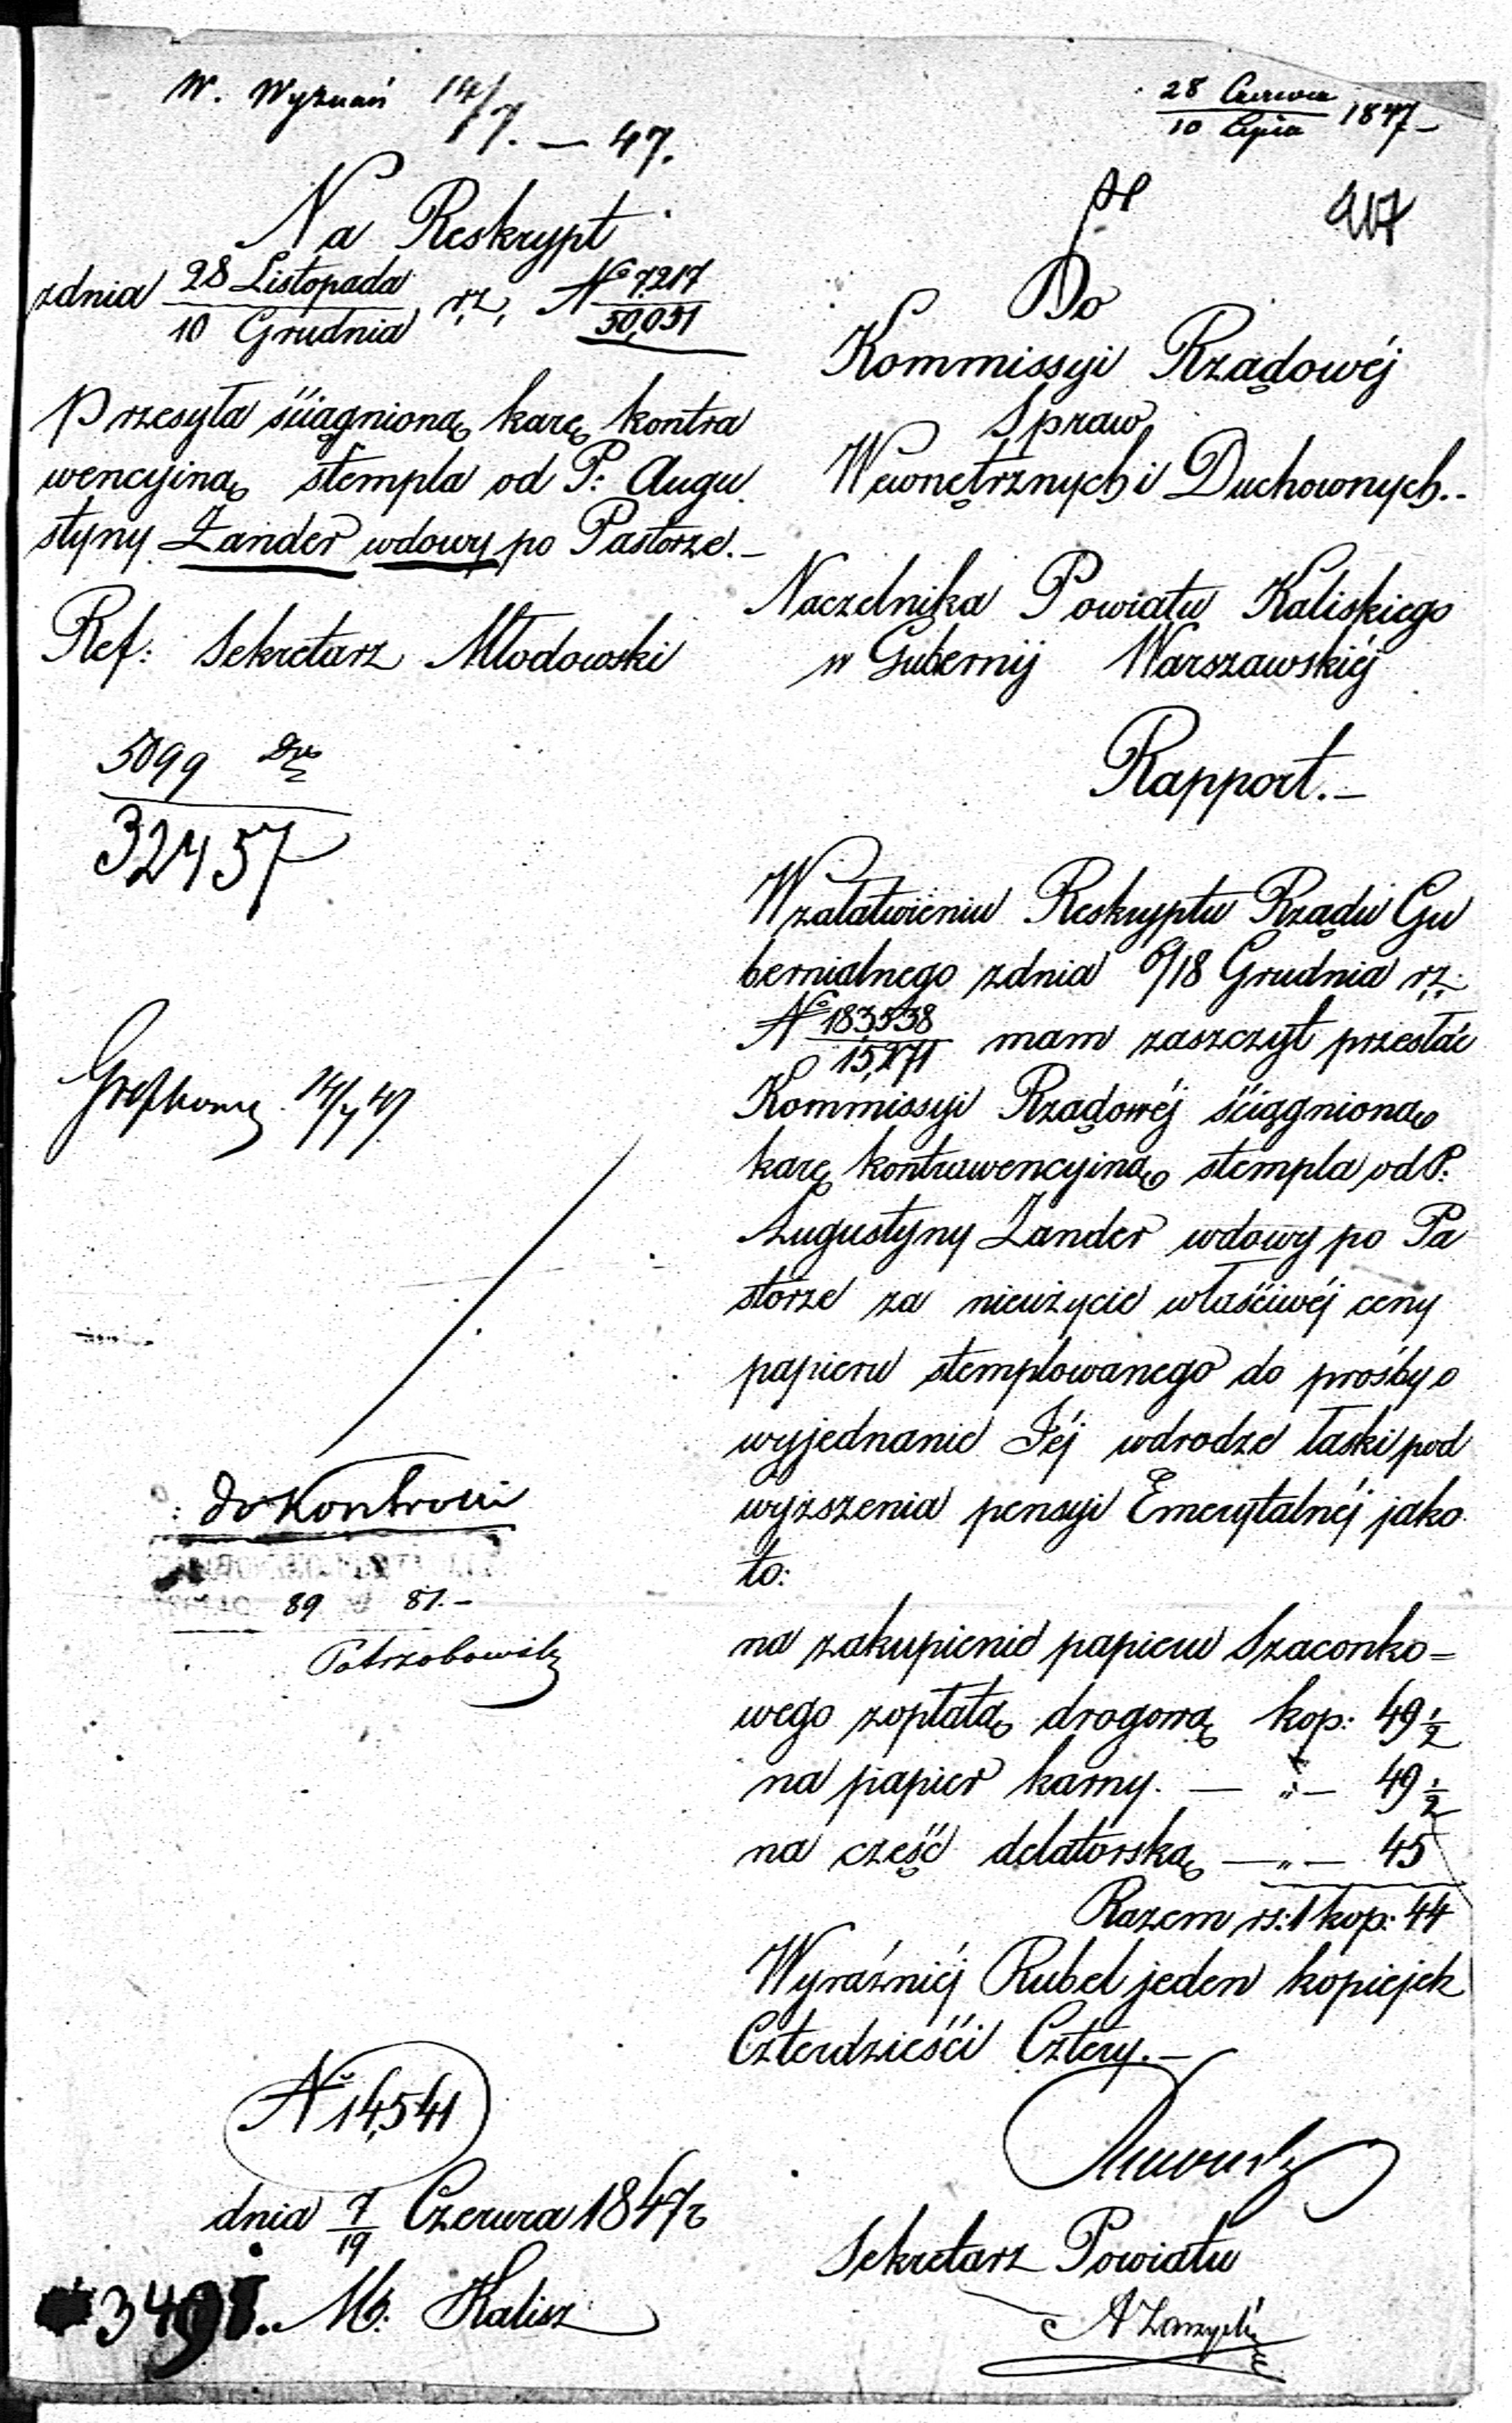 W. Wyznań 14/7. — 47.
28 Czerwca
10 Lipca 1847 —
417
Na Reskrypt
zdnia 28 Listopada r.z. No 7217
10 Grudnia 50,051
Przesyła ściągnioną karę kontra
wencyiną stempla od P: Augu
styny Zander wdowy po Pastorze. —
Ref: Sekretarz Młodowski
5099
32457
14/7 47
do Kontroli
89 81. —
No 14,541
dnia 7/19 Czerwca 1847 r
3498. Mto. Kalisz
Do
Kommissyi Rządowéj
Spraw
Wewnętrznych i Duchownych. -
Naczelnika Powiatu Kaliskiego
w Gubernij Warszawskiéj
Rapport. —
W załatwieniu Reskryptu Rządu Gu
bernialnego zdnia 6/18 Grudnia r.z:
No 183,538
15,271 mam zaszczyt przesłać
Kommissyi Rządowéj ściągnioną
karę kontrawencyiną stempla od P:
Augustyny Zander wdowy po Pa
storze za nieużycie właściwéj ceny
papieru stemplowanego do prośby o
wyjednanie Jéj wdrodze łaski pod
wyższenia pensyi Emerytalnéj jako
to:
na zakupienie papieru Szaconko=
wego zopłatą drogową kop: 49 1/2
na papier karny. — " — 49 1/2
na część delatorską — " — 45
Razem rs: 1 kop: 44
Wyraźniéj Rubel jeden kopiejek
Czterdzieści Cztery. —
Sekretarz Powiatu